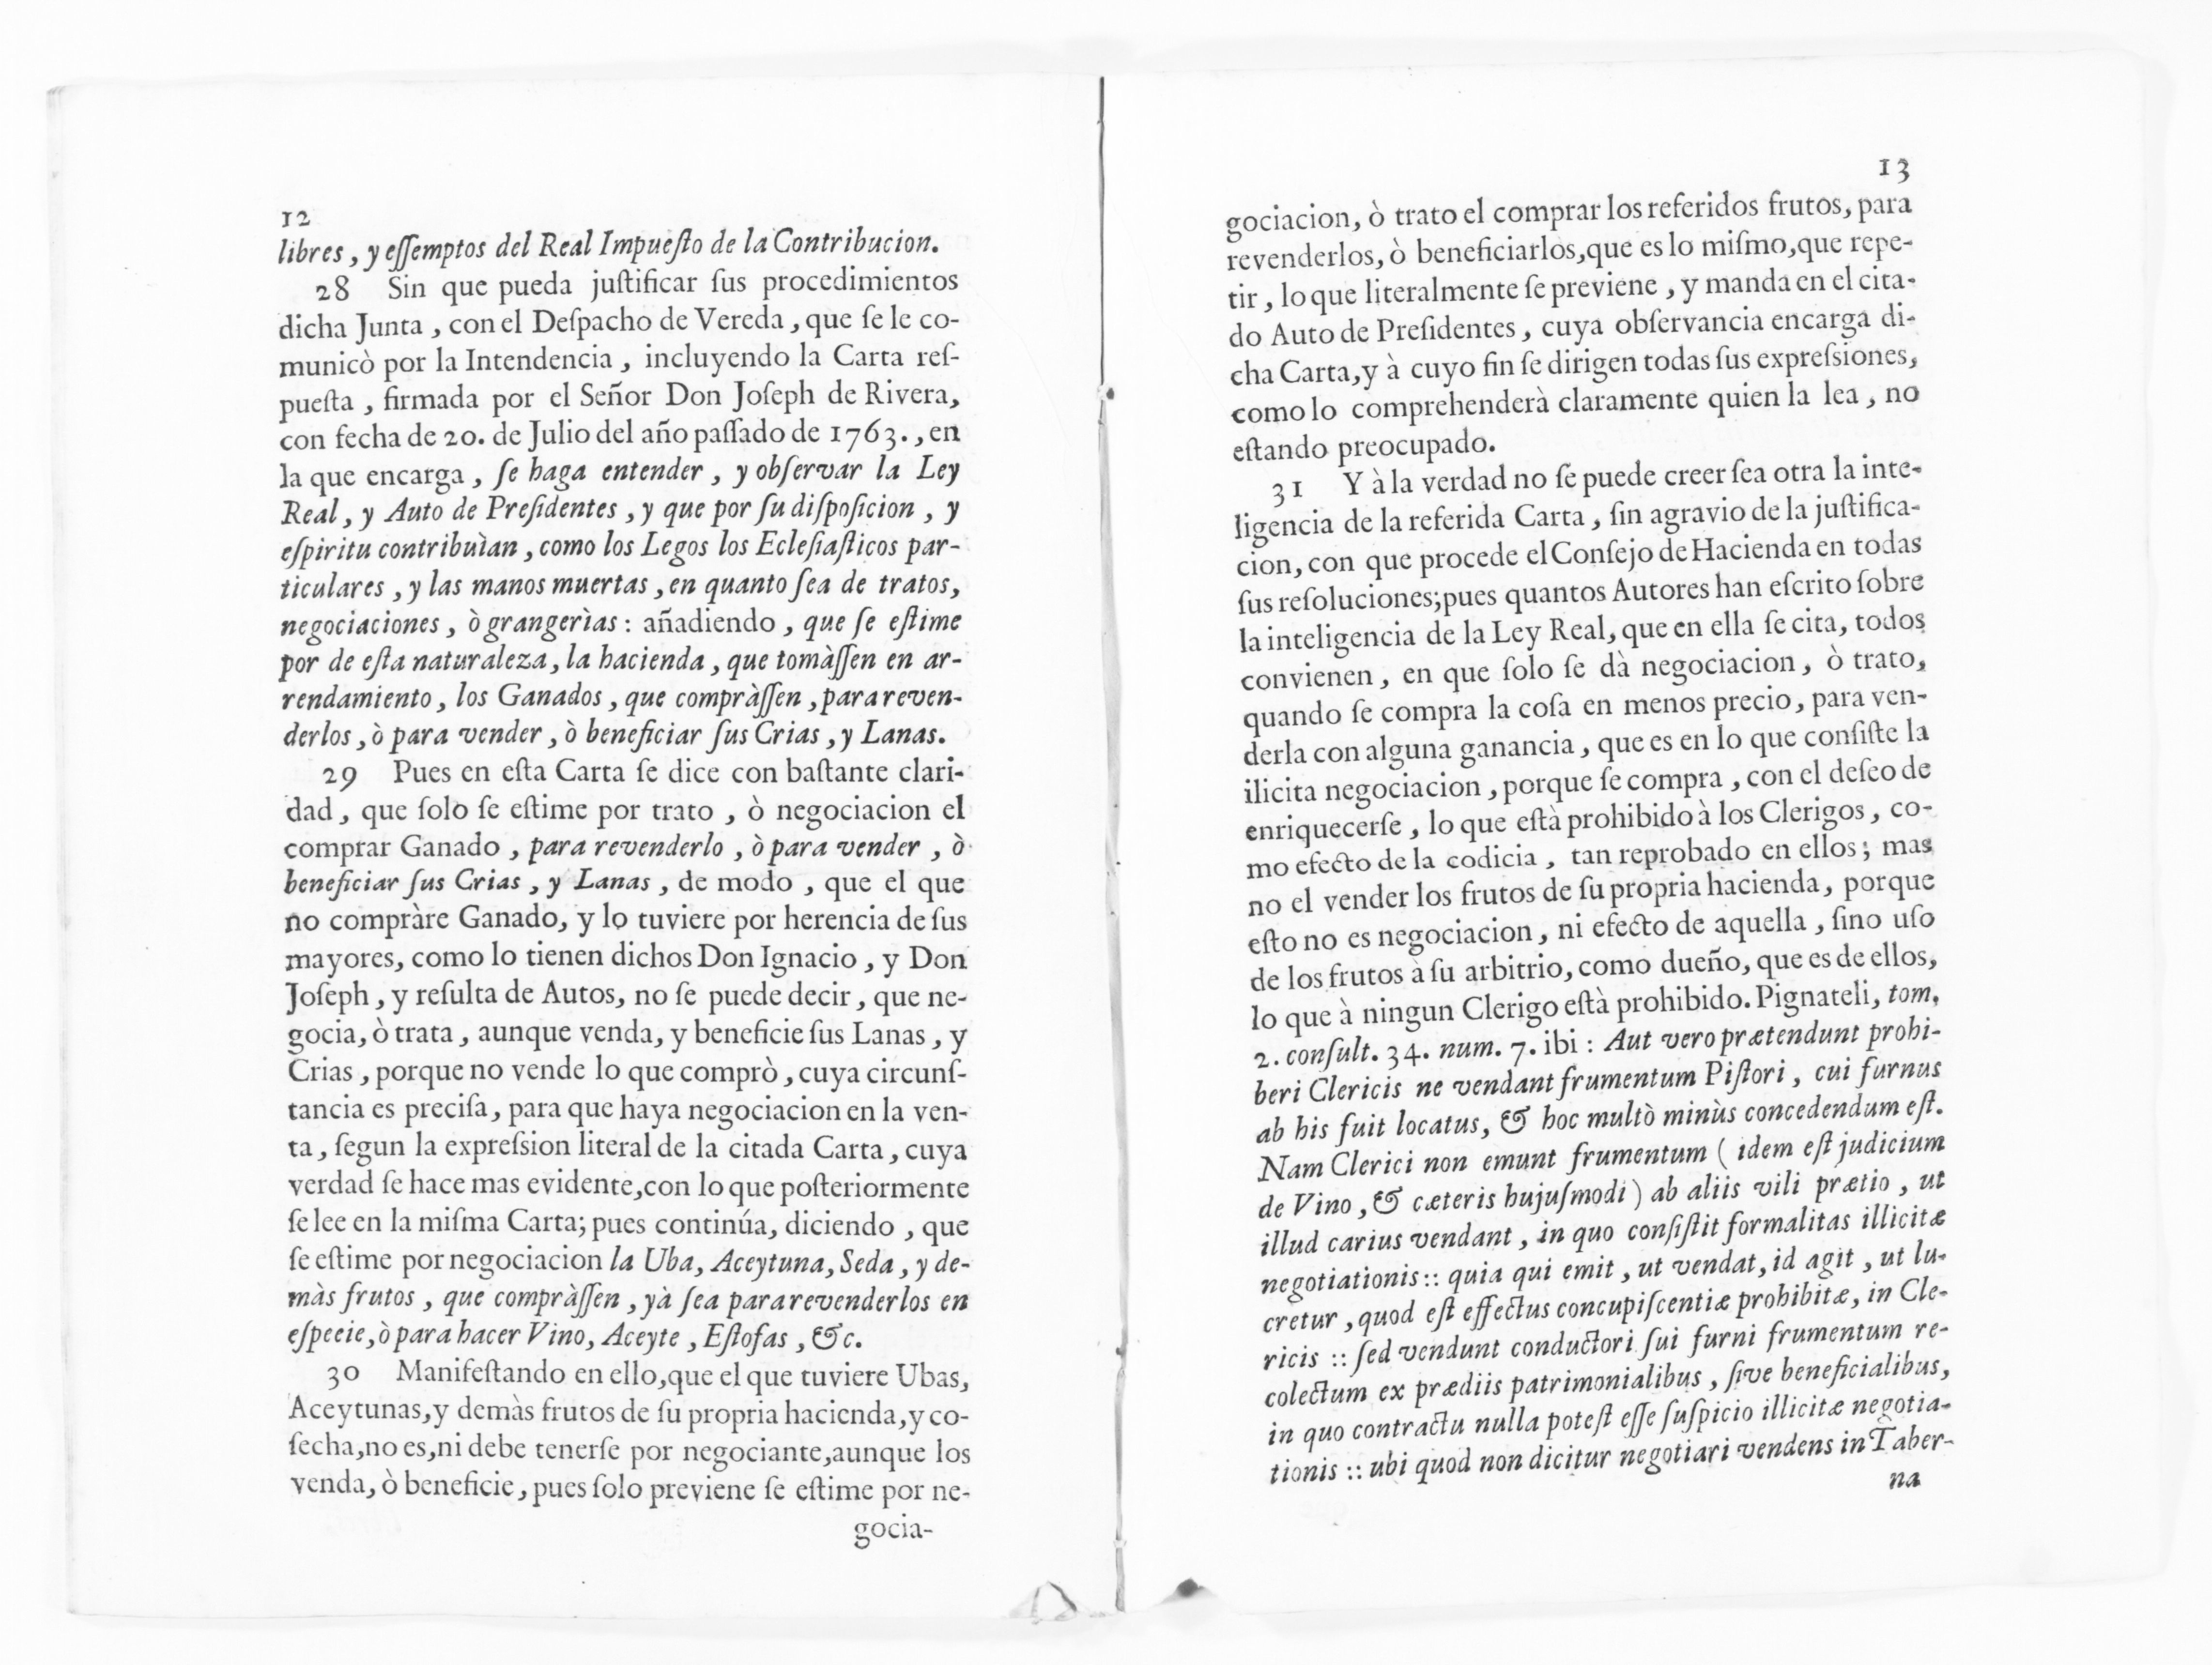 12
libres, y eſſemptos del Real Impueſto de la Contribucion.
28 Sin que pueda juſtificar ſus procedimientos
dicha Junta, con el Deſpacho de Vereda, que ſe le co-
municò por la Intendencia, incluyendo la Carta reſ-
pueſta, firmada por el Señor Don Joſeph de Rivera,
con fecha de 20. de Julio del año paſſado de 1763., en
la que encarga, ſe haga entender, y obſervar la Ley
Real, y Auto de Preſidentes, y que por ſu diſpoſicion, y
eſpiritu contribuìan, como los Legos los Ecleſiaſticos par-
ticulares, y las manos muertas, en quanto ſea de tratos,
negociaciones, ò grangerìas: añadiendo, que ſe eſtime
por de eſta naturaleza, la hacienda, que tomàſſen en ar-
rendamiento, los Ganados, que compràſſen, para reven-
derlos, ò para vender, ò beneficiar ſus Crias, y Lanas.
29 Pues en eſta Carta ſe dice con baſtante clari-
dad, que ſolo ſe eſtime por trato, ò negociacion el
comprar Ganado, para revenderlo, ò para vender, ò
beneficiar ſus Crias, y Lanas, de modo, que el que
no compràre Ganado, y lo tuviere por herencia de ſus
mayores, como lo tienen dichos Don Ignacio, y Don
Joſeph, y reſulta de Autos, no ſe puede decir, que ne-
gocia, ò trata, aunque venda, y beneficie ſus Lanas, y
Crias, porque no vende lo que comprò, cuya circunſ-
tancia es preciſa, para que haya negociacion en la ven-
ta, ſegun la expreſsion literal de la citada Carta, cuya
verdad ſe hace mas evidente, con lo que poſteriormente
ſe lee en la miſma Carta; pues continúa, diciendo, que
ſe eſtime por negociacion la Uba, Aceytuna, Seda, y de-
màs frutos, que compràſſen, yà ſea para revenderlos en
eſpecie, ò para hacer Vino, Aceyte, Eſtofas, &c.
30 Manifeſtando en ello, que el que tuviere Ubas,
Aceytunas, y demàs frutos de ſu propria hacienda, y co-
ſecha, no es, ni debe tenerſe por negociante, aunque los
venda, ò beneficie, pues ſolo previene ſe eſtime por ne-
gocia-
13
gociacion, ò trato el comprar los referidos frutos, para
revenderlos, ò beneficiarlos, que es lo miſmo, que repe-
tir, lo que literalmente ſe previene, y manda en el cita-
do Auto de Preſidentes, cuya obſervancia encarga di-
cha Carta, y à cuyo fin ſe dirigen todas ſus expreſsiones,
como lo comprehenderà claramente quien la lea, no
eſtando preocupado.
31 Y à la verdad no ſe puede creer ſea otra la inte-
ligencia de la referida Carta, ſin agravio de la juſtifica-
cion, con que procede el Conſejo de Hacienda en todas
ſus reſoluciones; pues quantos Autores han eſcrito ſobre
la inteligencia de la Ley Real, que en ella ſe cita, todos
convienen, en que ſolo ſe dà negociacion, ò trato,
quando ſe compra la coſa en menos precio, para ven-
derla con alguna ganancia, que es en lo que conſiſte la
ilicita negociacion, porque ſe compra, con el deſeo de
enriquecerſe, lo que eſtà prohibido à los Clerigos, co-
mo efecto de la codicia, tan reprobado en ellos; mas
no el vender los frutos de ſu propria hacienda, porque
eſto no es negociacion, ni efecto de aquella, ſino uſo
de los frutos à ſu arbitrio, como dueño, que es de ellos,
lo que à ningun Clerigo eſtà prohibido. Pignateli, tom.
2. conſult. 34. num. 7. ibi: Aut vero prætendunt prohi-
beri Clericis ne vendant frumentum Piſtori, cui furnus
ab his fuit locatus, & hoc multò minùs concedendum eſt.
Nam Clerici non emunt frumentum ( idem eſt judicium
de Vino, & cæteris hujuſmodi ) ab aliis vili prætio, ut
illud carius vendant, in quo conſiſtit formalitas illicitæ
negotiationis:: quia qui emit, ut vendat, id agit, ut lu-
cretur, quod eſt effectus concupiſcentiæ prohibitæ, in Cle-
ricis :: ſed vendunt conductori ſui furni frumentum re-
colectum ex prædiis patrimonialibus, ſive beneficialibus,
in quo contractu nulla poteſt eſſe ſuſpicio illicitæ negotia-
tionis :: ubi quod non dicitur negotiari vendens in Taber-
na